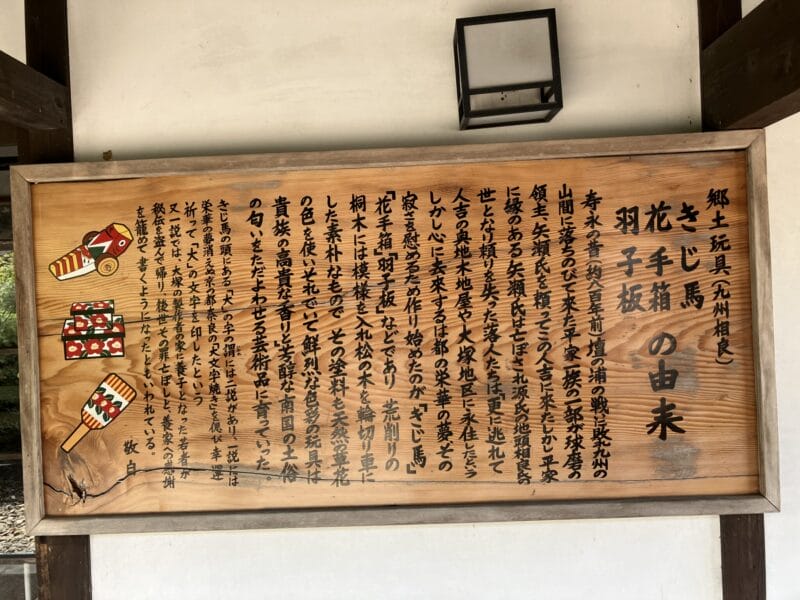 郷土玩具(九州相良)
きじ馬
花手箱の由来
羽子板
寿永の昔(約八百年前)壇の浦の戦に敗れ九州の
山間に落ちのびて来た平家一族の一部が球磨の
領主、矢瀬氏を頼ってこの人吉に来たしかし平家
に縁のある矢瀬氏は亡ぼされ源氏の地頭相良氏の
世となり頼りを失った落人たちは更に逃れて
人吉の奥地木地屋や大塚地区に永住したという
しかし心に去来するは都の栄華の夢その
寂さを慰めるため作り始めたのが「きじ馬」
「花手箱」「羽子板」などであり、荒削りの
桐木には模様を入れ松の木を輪切り車に
した素朴なもので、その塗料も天然の草花
の色を使いそれでいて鮮烈な色彩の玩具は
貴族の高貴な香りと芳醇な南国の土俗
の匂いをただよわせる芸術品に育っていった。
きじ馬の頭にある「大」の字の謂には二説があり、一説には
栄華の夢消えぬ京の都奈良の「大文字焼き」を偲び幸運
祈って「大」の文字を印したという
又一説では、大塚の製作者の家に養子となった若者が
秘伝を盗んで帰り、後世その罪亡ぼしと、養家への感謝
を籠めて書くようになったともいわれている。
敬白